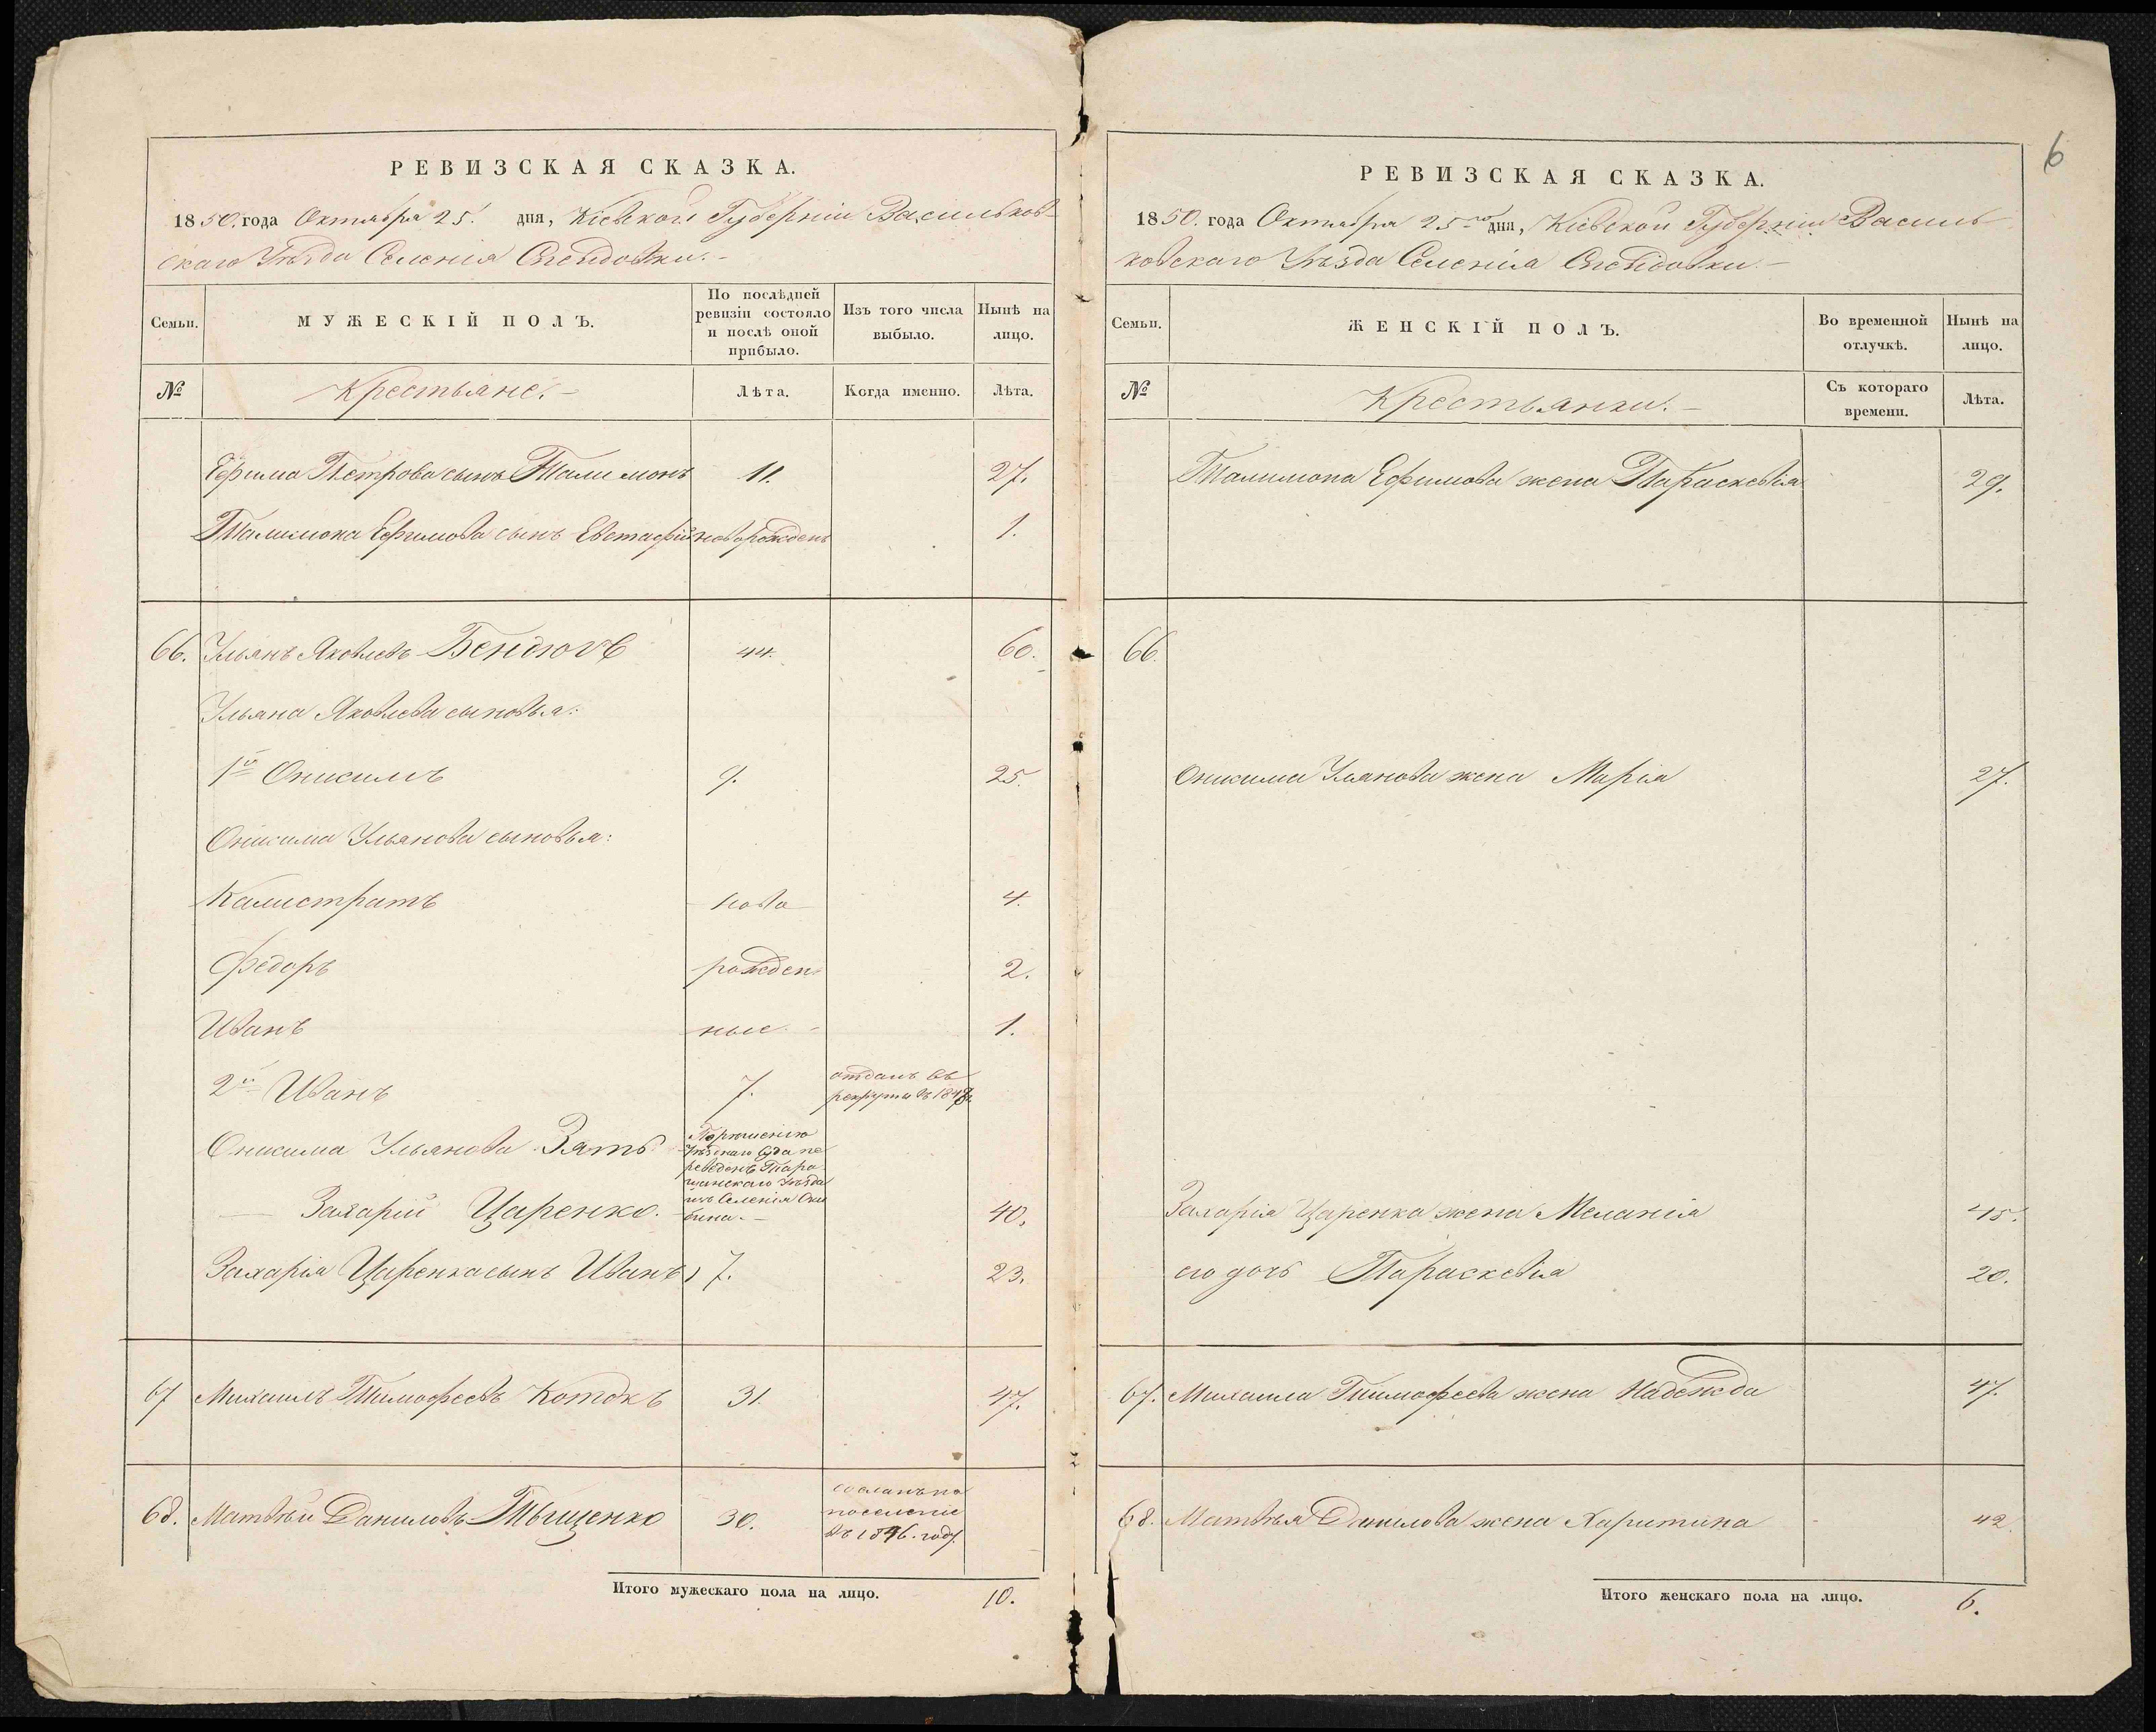 РЕВИЗСКАЯ СКАЗКА.
1850. года Октября 25. дня, Кіевской Губерніи Васильков-
скаго Уѣзда Селенія
Семьи.
МУЖЕСКІЙ ПОЛЪ.
По послѣдней ревизіи состояло и послѣ оной прибыло.
Изъ того числа выбыло.
Нынѣ на лицо.
№
Крестьяне.
Лѣта.
Когда именно.
Лѣта.
Ефима Петрова сынъ Талимонъ 11. 27.
Талимона Ефимова сынъ Евстафій новорожденъ 1.
66. Ульянъ Яковлевъ Бендюгъ 44. 60.
Ульяна Яковлева сыновья:
1й Онисимъ 9. 25.
Онисима Ульянова сыновья:
Калистратъ ново 4.
Федоръ рожден- 2.
Иванъ ные. 1.
2й Иванъ 7. отданъ въ рекруты въ
Онисима Ульянова Зять
По рѣшенію
Уѣзднаго Суда пе
реведенъ Тара
щанскаго Уѣзда
изъ Селенія
Захарій Царенко. 40.
Захарія Царенка сынъ Иванъ 7. 23.
67 Михаилъ Тимофеевъ Котокъ 31. 47.
68. Матвѣй Даниловъ Тыщенко 30.
сосланъ на
поселеніе
въ 1846. году.
Итого мужескаго пола на лицо. 10.
6
РЕВИЗСКАЯ СКАЗКА.
1850. года Октября 25го дня, Кіевской Губерніи Василь
ковскаго Уѣзда Селенія
Семьи.
ЖЕНСКІЙ ПОЛЪ.
Во временной отлучкѣ.
Нынѣ на лицо.
№
Крестьянки.
Съ котораго времени.
Лѣта.
Талимона Ефимова жена Параскевія 29.
66.
Онисима Ульянова жена Марія 27.
Захарія Царенка жена Меланія 45.
его дочь Параскевія 20.
67. Михаила Тимофеева жена Надежда 47.
68. Матвѣя Данилова жена Харитина 42.
Итого женскаго пола на лицо. 6.